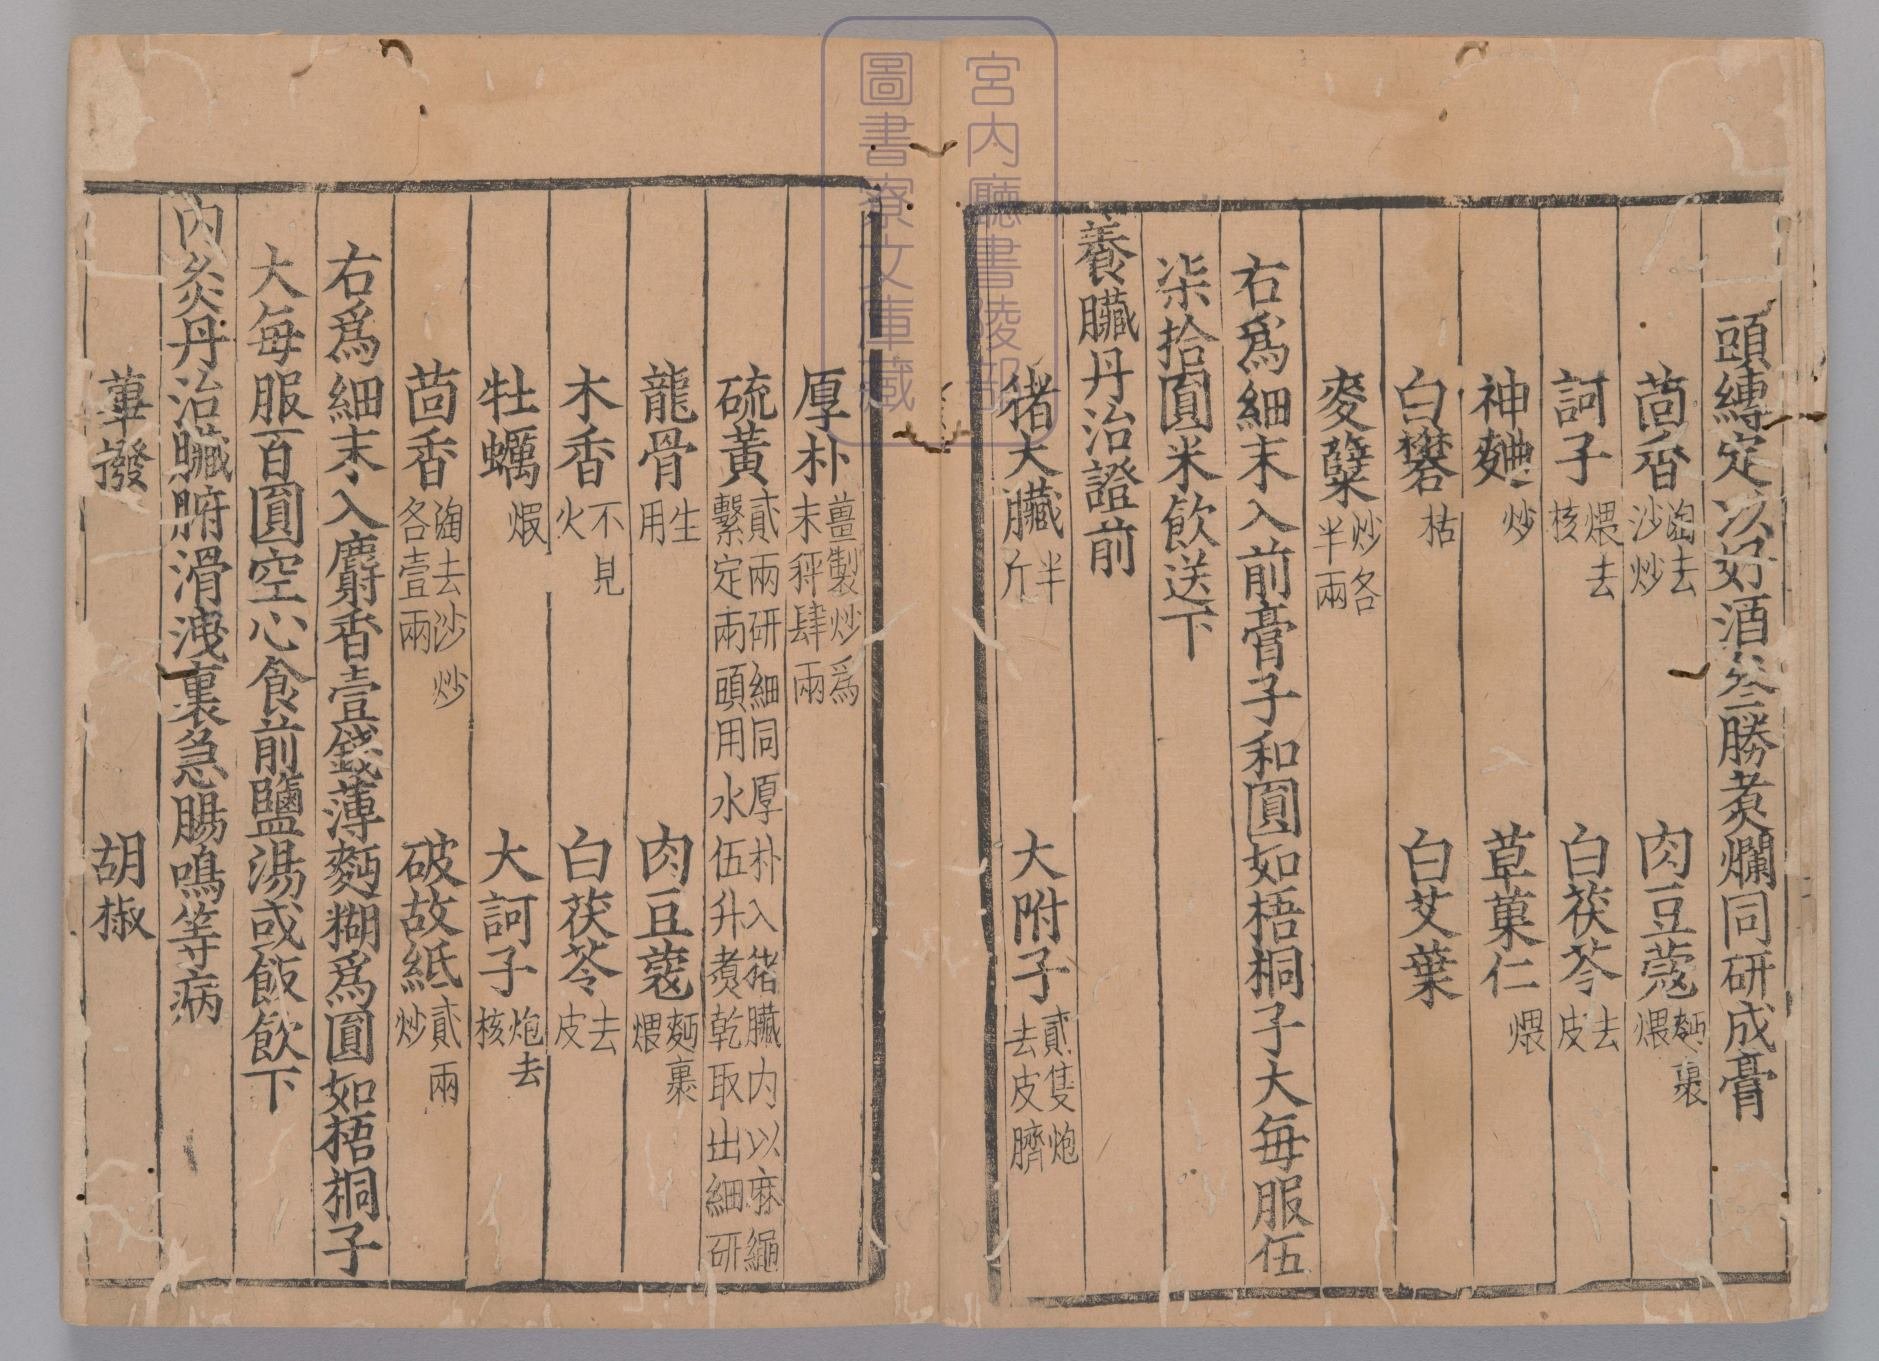 頭縛定以好酒叁勝煮爛同研成膏
茴香淘去沙炒 肉豆蔻麪裹煨
訶子煨去核 白茯苓去皮
神麯炒 草菓仁煨
白礬枯 白艾葉
麥糵炒各半兩
右爲細末入前膏子和圓如梧桐子大每服伍
柒拾圓米飲送下
養臟丹治證前
猪大臟半斤 大附子貳隻炮去皮臍
厚朴薑製炒爲末秤肆兩
硫黃貳兩研細同厚朴入猪臟内以麻繩繫定兩頭用水伍升煮乾取出細研
龍骨生用 肉豆蔻麪裹煨
木香不見火 白茯苓去皮
牡蠣煆 大訶子炮去核
茴香淘去沙炒各壹兩 破故紙貳兩炒
右爲細末入麝香壹錢薄麪糊爲圓如梧桐子
大每服百圓空心食前鹽湯或飯飲下
内灸丹治臟腑滑洩裏急腸鳴等病
蓽撥 胡椒
宮内廳書陵部
圖書寮文庫藏